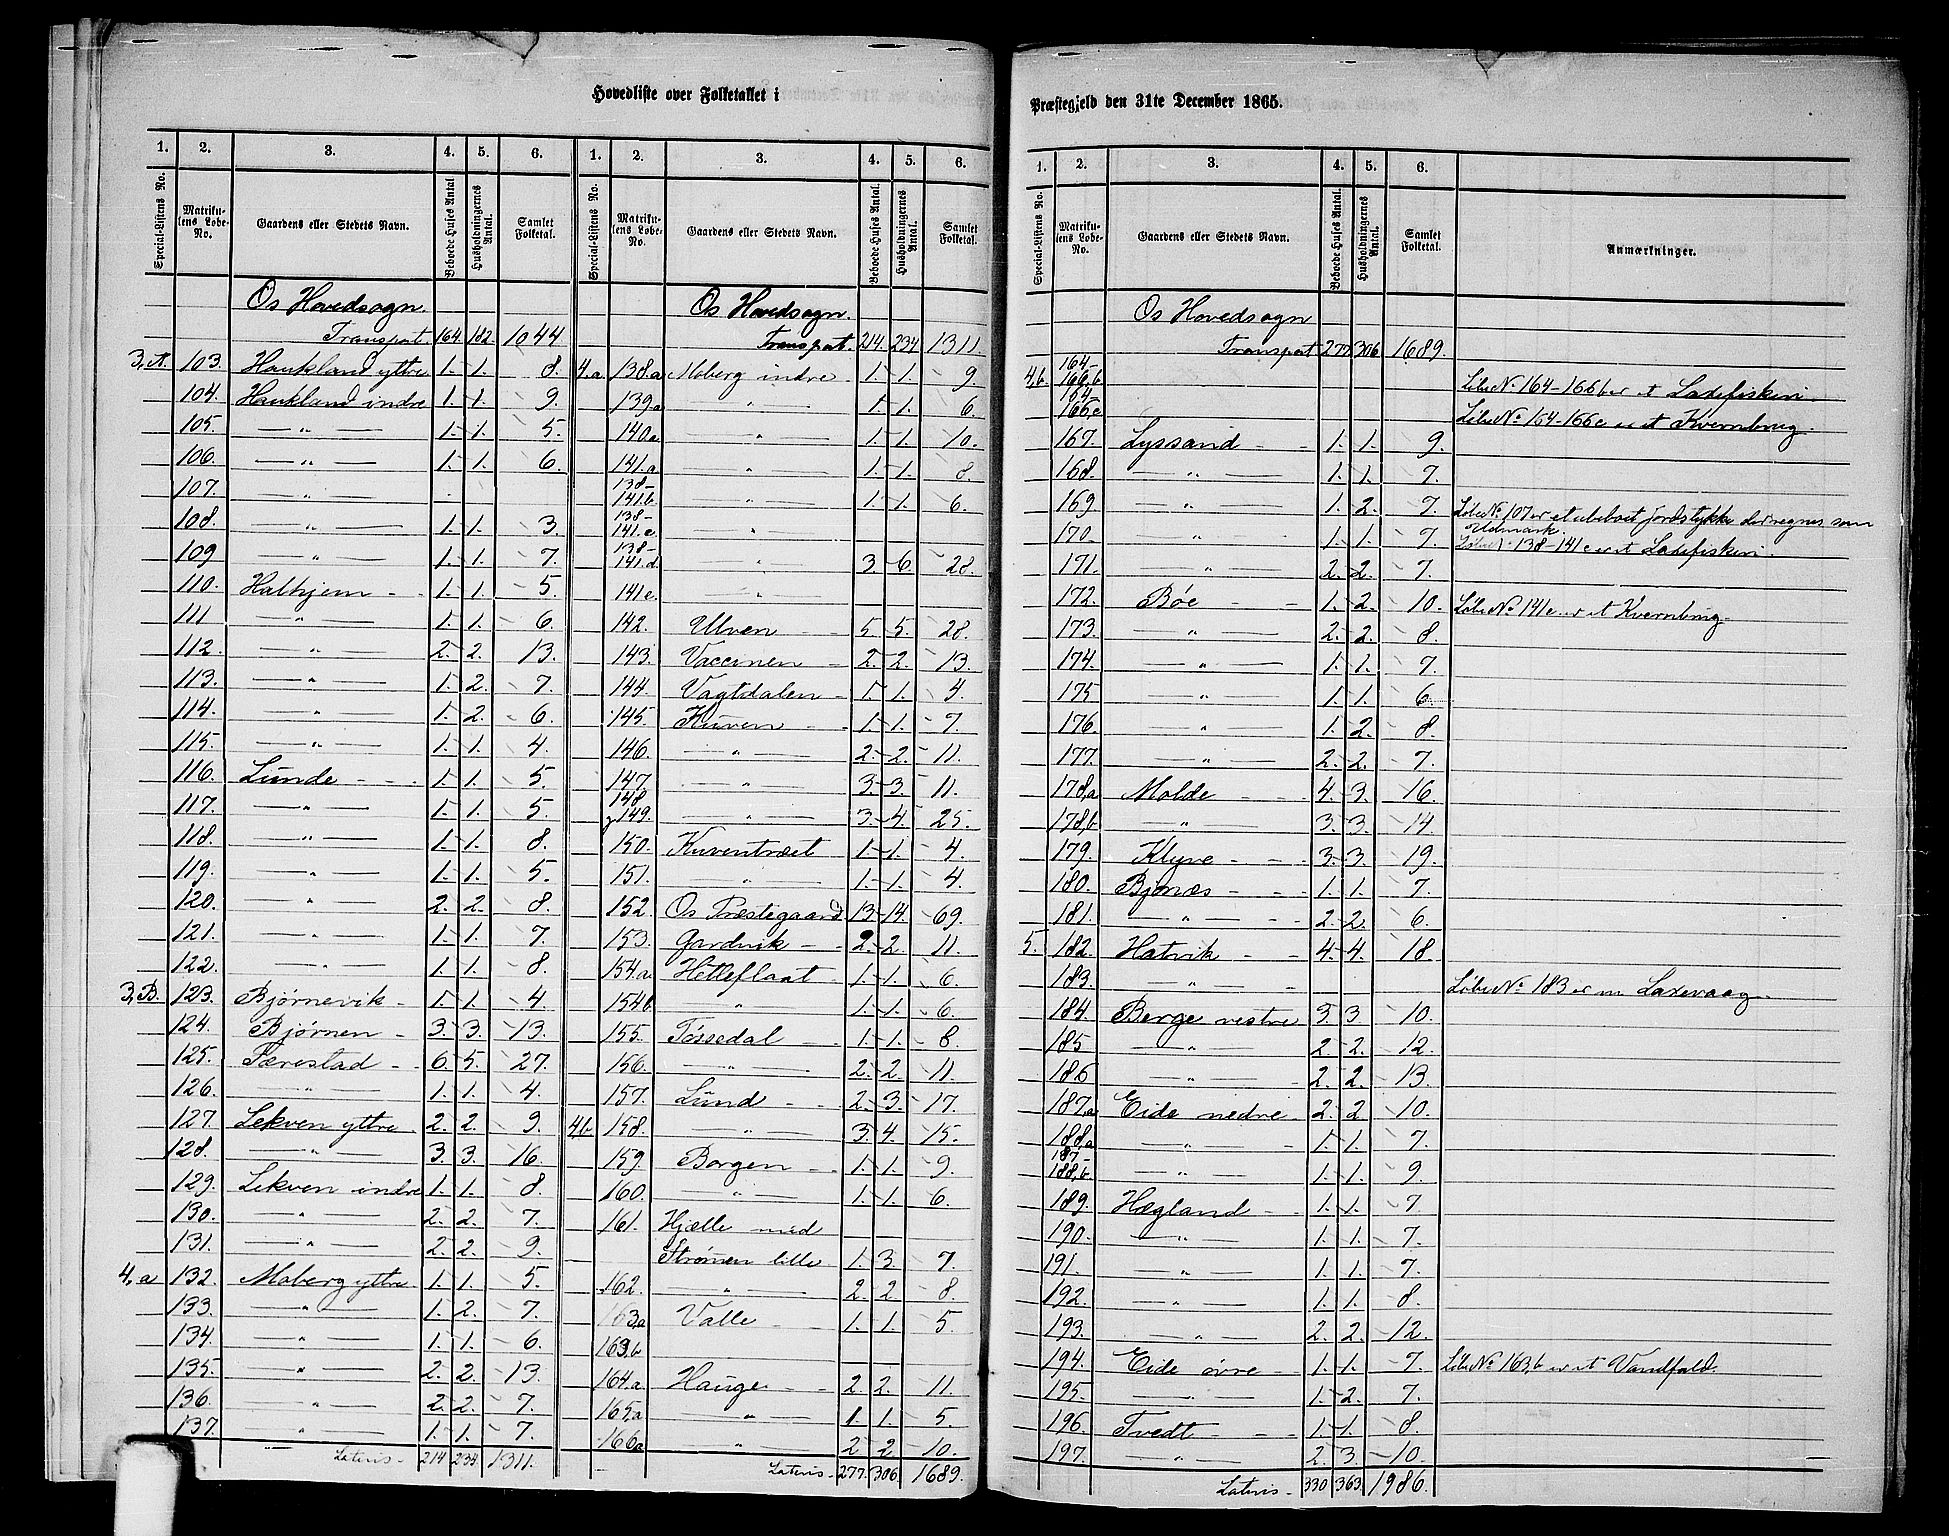 Hovedliste over Folketallet i
1. 2. 3. 4. 5. 6. 1. 2. 3. 4. 5. 6.
Special-Listens No. Matrikulens Løbe-No. Gaardens eller Stedets Navn. Beboede Huses Antal Husholdningernes Antal. Samlet Folketal. Special-Listens No. Matrikulens Løbe-No. Gaardens eller Stedets Navn. Beboede Huses Antal. Husholdningernes Antal. Samlet Folketal.
Os Hovedsogn.
Transport. 164. 182. 1044.
3,A. 103. Haukland yttre 1. 1. 8.
104. Haukland indre 1. 1. 9.
105. — " — 1. 1. 5.
106. — " — 1. 1. 6.
107. — " —
108. — " — 1. 1. 3.
109 — " — 1. 1. 7.
110. Halhjem - - 1. 1. 5.
111 — " — 1. 1. 6.
112. — " — 2. 2. 13.
113. — " — 1. 2. 7.
114. — " — 1. 2. 6.
115. — " — 1. 1. 4.
116. Lunde - - - 1. 1. 5.
117. — " — 1. 1. 5.
118. — " — 1. 1. 8.
119. — " — 1. 1. 5.
120. — " — 2. 2. 8.
121. — " — 1. 1. 7.
122. — " — 1. 1. 8.
3,B. 123. Bjørnevik - 1. 1. 4.
124. Bjørnen - 3. 3. 13.
125. Særestad - - 6. 5. 27.
126. — " — 1. 1. 4.
127. Lekven yttre 2. 2. 9.
128. — " — 3. 3. 16.
129. Lekven indre 1. 1. 8.
130. — " — 2. 2. 7.
131. — " — 2. 2. 9.
4,a 132. Moberg yttre 1. 1. 5.
133. — " — 1. 2. 7.
134. — " — 1. 1. 6.
135. — " — 2. 2. 13.
136. — " — 2. 2. 7.
137. — " — 1. 1. 7.
Lateris - 214 234. 1311.
Os Hovedsogn.
Transport. 214. 234 1311.
4,a 138.a Moberg indre 1. 1. 9.
139.a — " — 1. 1. 6.
140.a. — " — 1. 1. 10.
141.a — " — 1. 1. 8.
138-141.b. — " — 1. 1. 6.
138-141.c. — " —
138-141.d — " — 3. 6. 28.
141.e. — " —
142. Ulven - - 5. 5. 28.
143. Vaccinen - 2. 2. 13.
144. Vagtdalen - 1. 1. 4.
145. Kuven - - 1. 1. 7.
146. — " — 2. 2. 11.
147. — " — 3. 3. 11.
148 g 149. — " — 3. 4. 25.
150. Kuventræet 1. 1. 4.
151. — " — 1. 1. 4.
152 Os Præstegaard 13. 14. 69.
153. Gardvik - - 2. 2. 11.
154.a Helleflaat - 1. 1. 6.
154b. — " — 1. 1. 6.
155. Tøssedal - 1. 1. 8.
156. — " — 2. 2. 11.
157. Lund - - 2. 3. 17.
4,b 158. — " — 3. 4. 15.
159. Borgen - - 1. 1. 9.
160. — " — 1. 1. 6.
161. Hjælle med
Strømen lille 1. 3. 7.
162. — " — 2. 2. 8.
163,a Valle - 1. 1. 5.
163,b
164.a Hauge - - 2. 2. 11.
165,a — " — 1. 1. 5.
166a — " — 2 2 10.
Lateris - 277. 306. 1689.
Præstegjeld den 31te December 1865.
1. 2. 3. 4. 5. 6.
Special-Listens No. Matrikulens Løbe-No. Gaardens eller Stedets Navn. Beboede Huses Antal. Husholdningernes Antal. Samlet Folketal. Anmærkninger.
Os Hovedsogn
Transport 277 306 1689.
4,b 164-166,b Løbe No 164-166b er et Laxefiskeri.
164-166,c Løbe No 164-166c er et Kvernbrug.
167. Lyssand - - 1. 1. 9.
168. — " — 1. 1. 7.
169 — " — 1. 2. 7. Løbe No 107 er et ubeboet Jordstykke der regnes som Udmark.
170. — " — 1. 1. 7. Løbe No 138-141c er et Laxefiskeri.
171. — " — 2. 2. 7.
172. Bøe - - 1. 2. 10. Løbe No 141e er et Kvernbrug.
173. — " — 2. 2. 8.
174. — " — 1. 1. 7.
175 — " — 1. 1. 6.
176. — " — 1. 2. 8.
177. — " — 2. 2. 7.
178,a Molde - - 4. 3. 16.
178,b — " — 3. 3. 14.
179. Klyve - - 3. 3. 19.
180. Bjønæs - - 1. 1. 7.
181. — " — 2. 2. 6.
5. 182. Hatvik - - 4. 4. 18.
183. — " — Løbe No 183 er en Laxevaag.
184. Berge vestre 3. 3 10.
185 — " — 2. 2. 12.
186 — " — 2. 2. 13.
187,a Eide nedre 2. 2 10.
188,a — " — 1. 1. 7.
187-188,b — " — 1. 1. 9.
189. Hægland - 1. 1. 7.
190. — " — 1. 1. 7.
191. — " — 1. 1. 7.
192. — " — 1. 1. 8.
193. — " — 2. 2. 12.
194. Eide øvre - 1. 1. 7. Løbe No 163,b er et Vandfald.
195. — " — 1. 2. 7.
196. Tvedt - - 1. 1. 8.
197. — " — 2. 3. 10.
Lateris - 330 363. 1986.